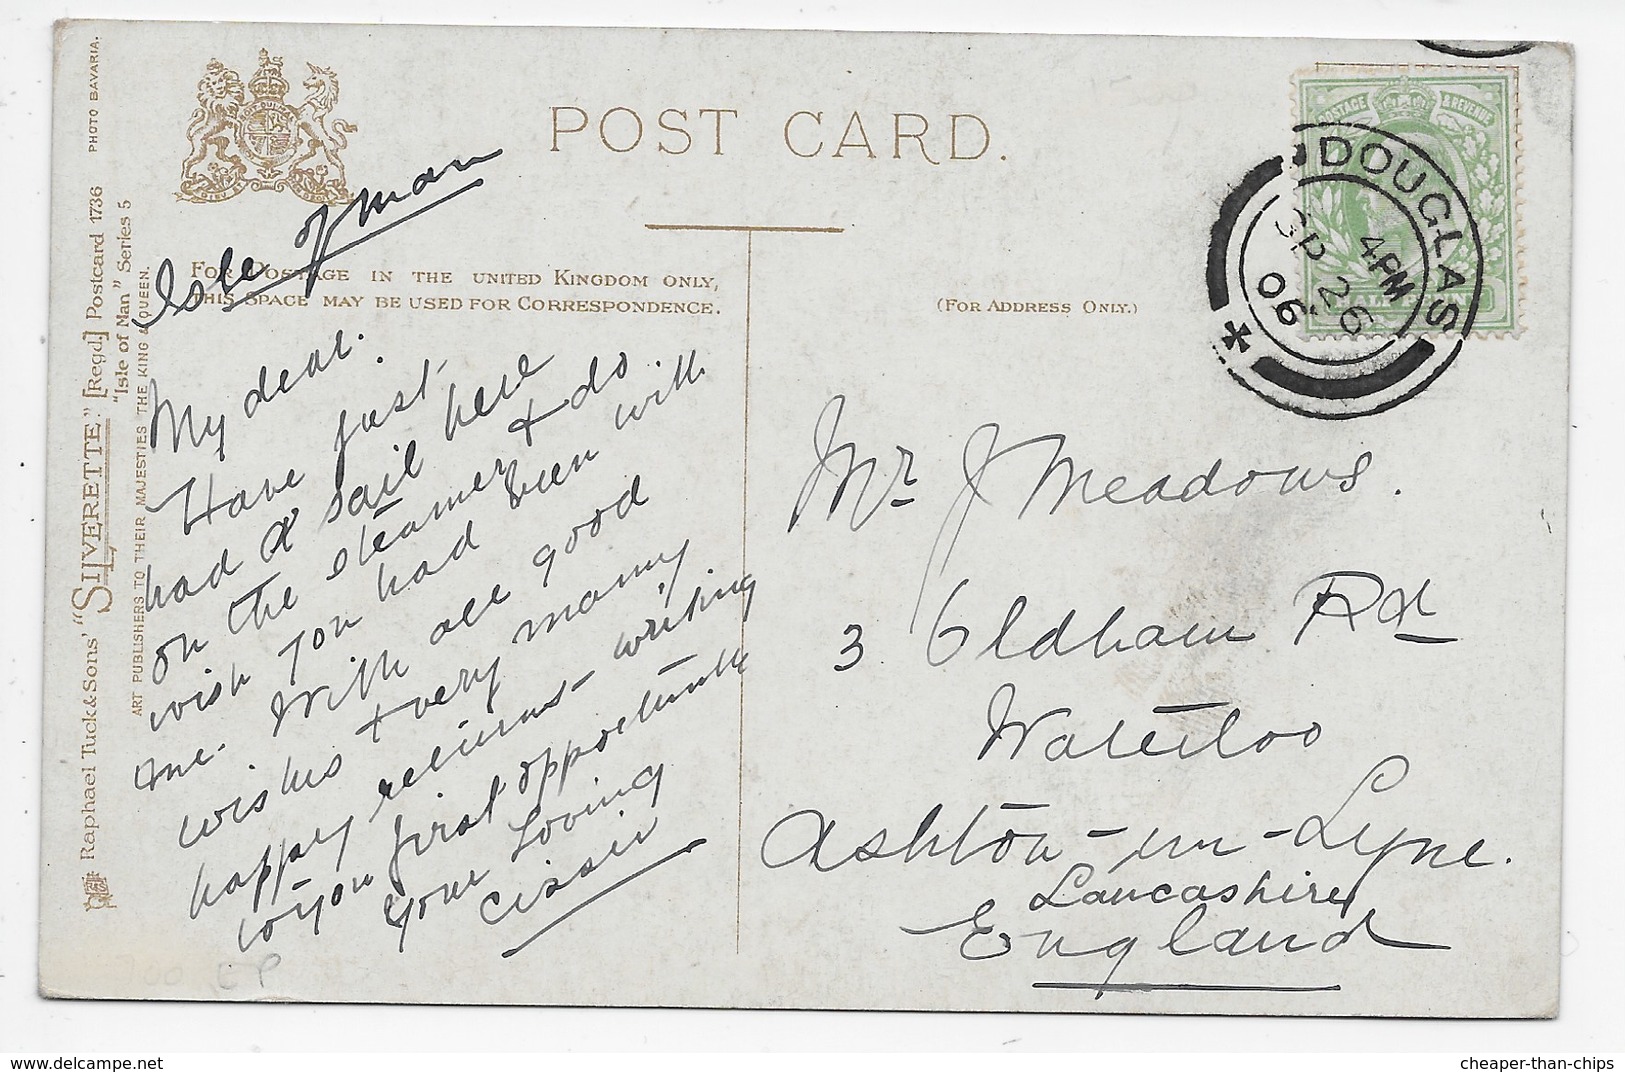 POST CARD.
FOR POSTAGE IN THE UNITED KINGDOM ONLY,
THIS SPACE MAY BE USED FOR CORRESPONDENCE.
(FOR ADDRESS ONLY.)
PHOTO BAVARIA.
Raphael Tuck & Sons' "SILVERETTE" [Regd] Postcard 1736
"Isle of Man" Series 5
ART PUBLISHERS TO THEIR MAJESTIES THE KING & QUEEN.
Isle of Man
My dear.
Have just
had a sail here
on the steamer & do
wish you had been with
me. With all good
wishes & very many
happy returns writing
to you first opportunity
Your Loving
Cissie
POSTAGE & REVENUE
HALFPENNY
DOUGLAS
4 PM
SP 26
06
Mr J Meadows.
3 Oldham Rd
Waterloo
Ashton-un-Lyne.
Lancashire
England
delcampe.net
cheaper-than-chips